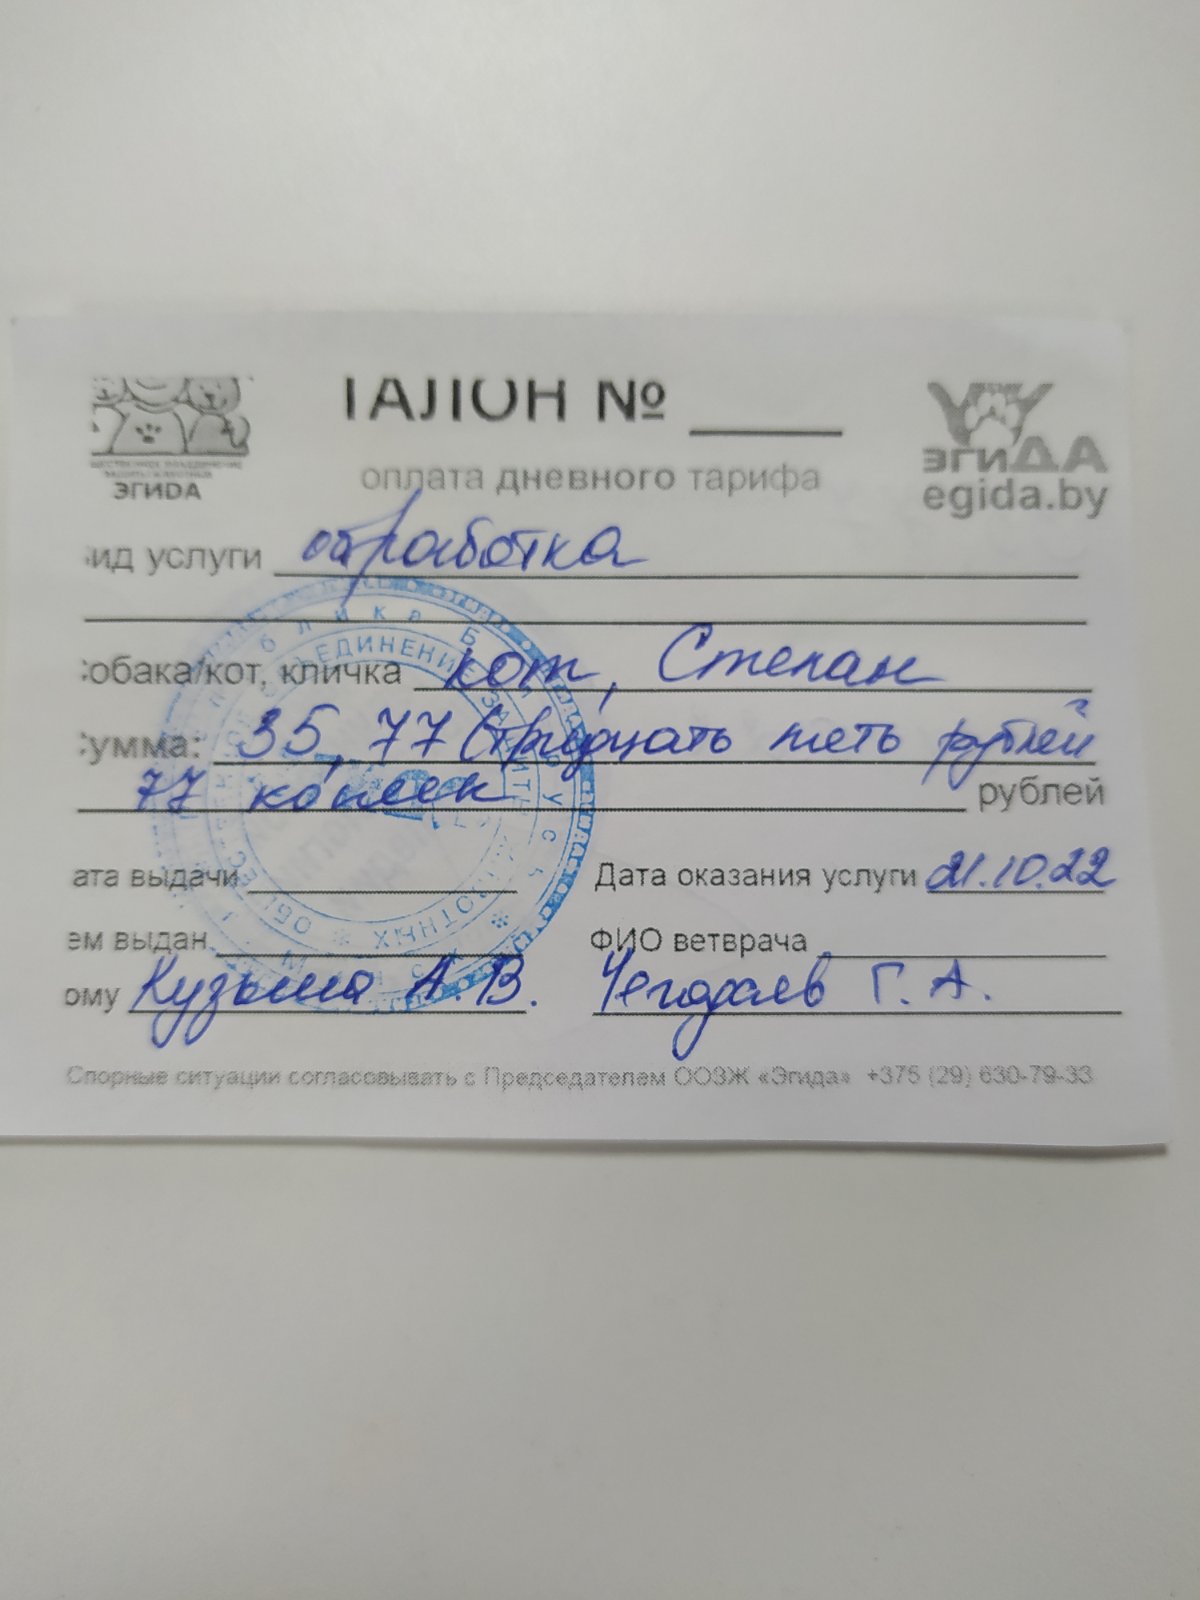 ТАЛОН № ___
оплата дневного тарифа
ЭГИДА
эгиДА
egida.by
ид услуги обработка
обака/кот, кличка кот, Степан
умма: 35,77 (тридцать пять рублей
77 копеек рублей
ата выдачи
Дата оказания услуги 21.10.22
ем выдан
ФИО ветврача
ому Кузьма А.В. Чегодаев Г.А.
Спорные ситуации согласовывать с Председателем ООЗЖ «Эгида» +375 (29) 630-79-33